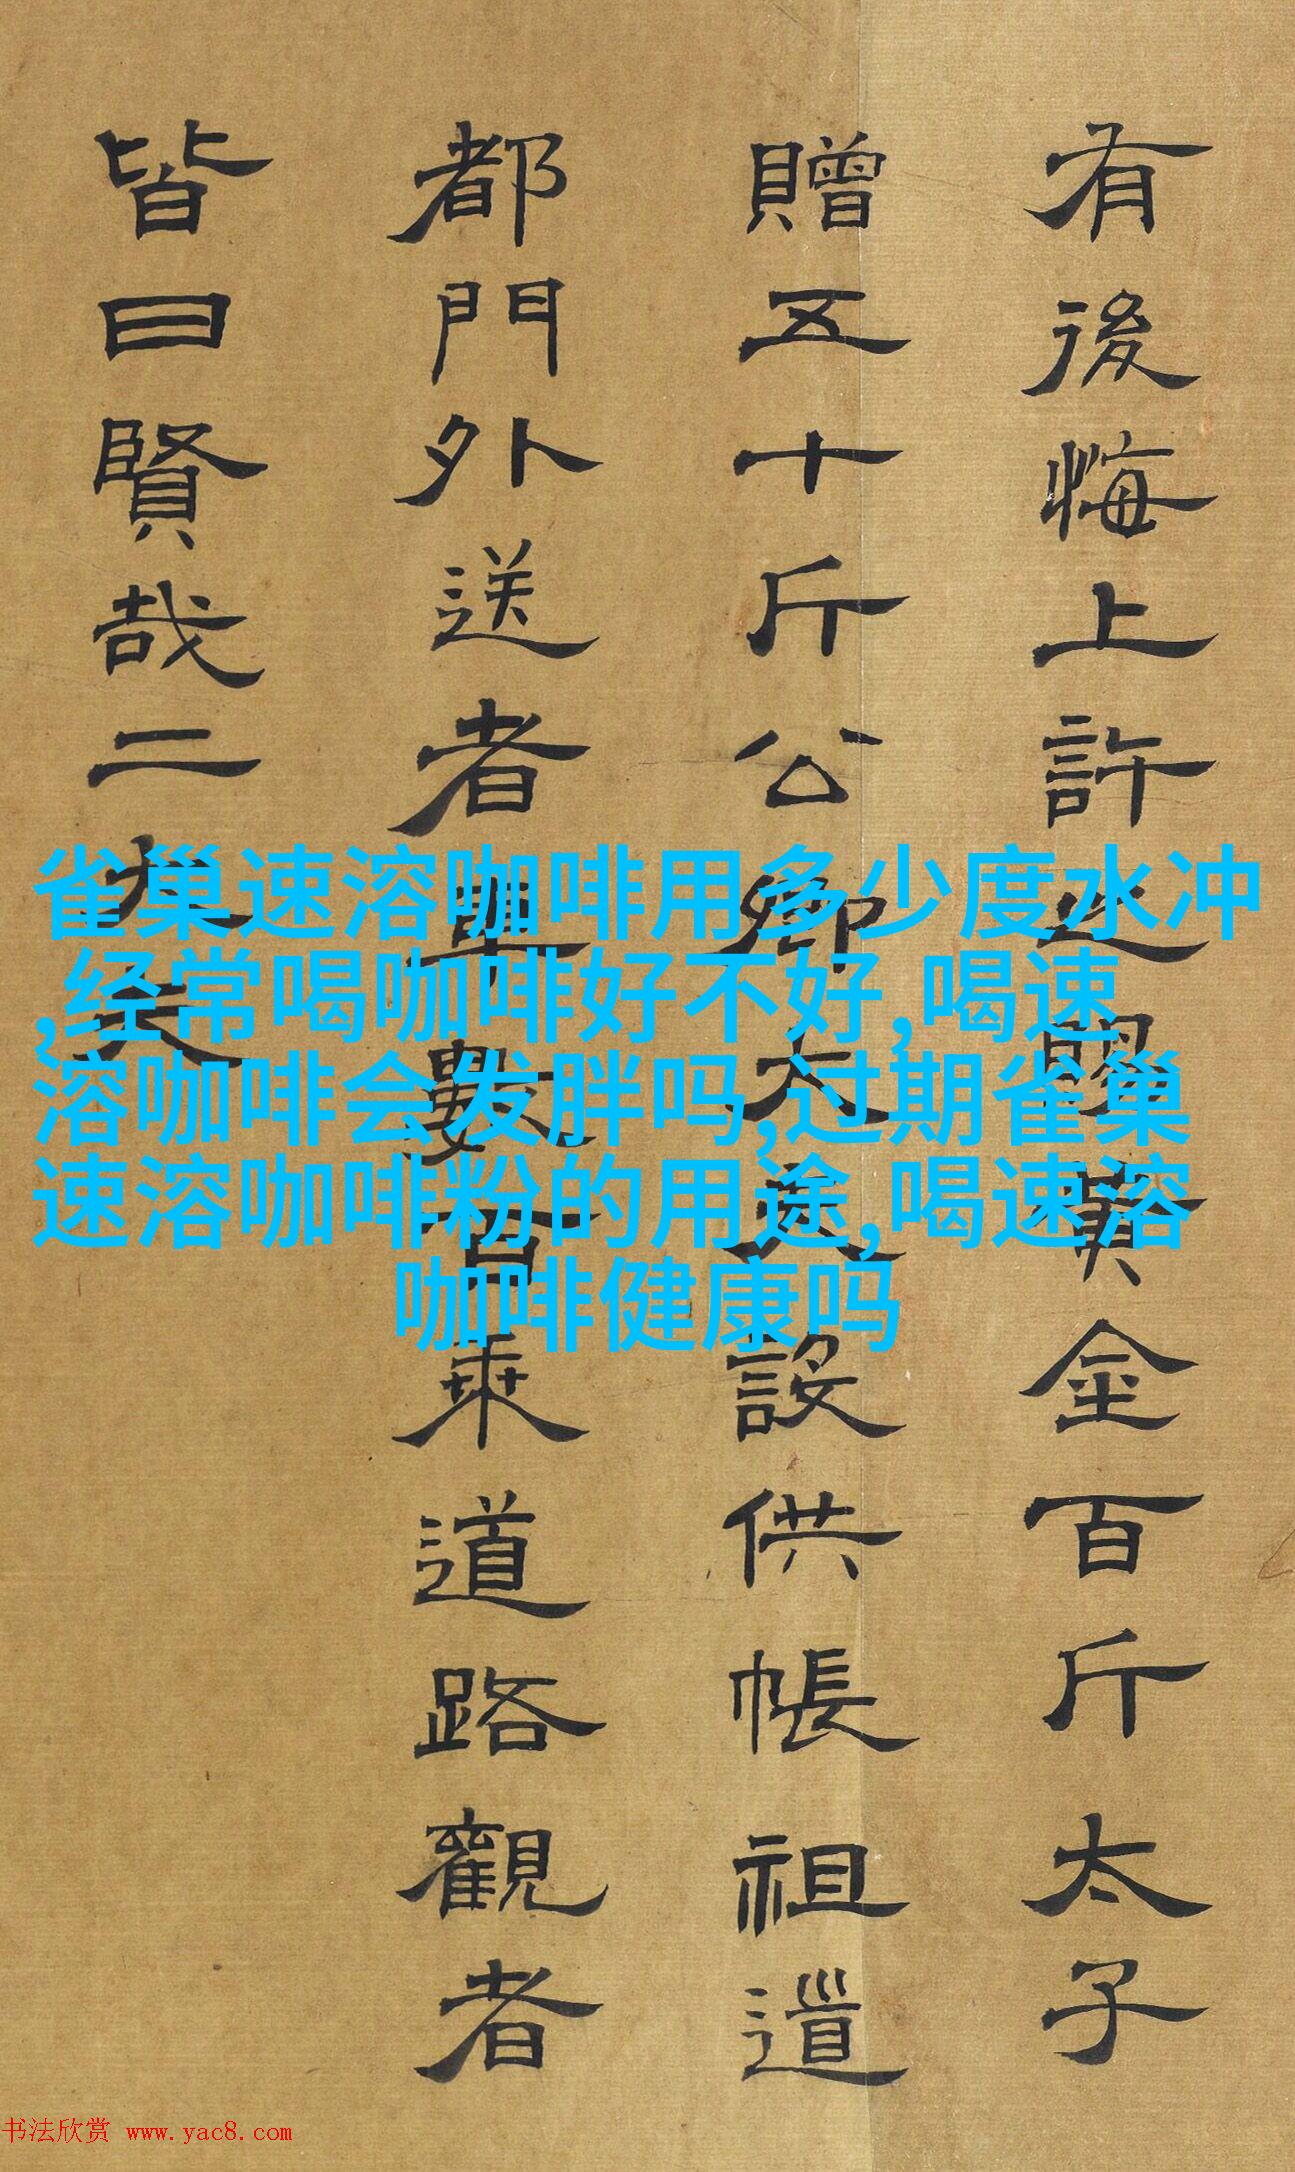 有後悔上許之賜黄金百斤太子
贈五十斤公卿大夫設供帳祖道
都門外送者車數百乘道路觀者
皆曰賢哉二大夫
雀巢速溶咖啡用多少度水冲
,经常喝咖啡好不好,喝速
溶咖啡会发胖吗,过期雀巢
速溶咖啡粉的用途,喝速溶
咖啡健康吗
书法欣赏 www.yac8.com